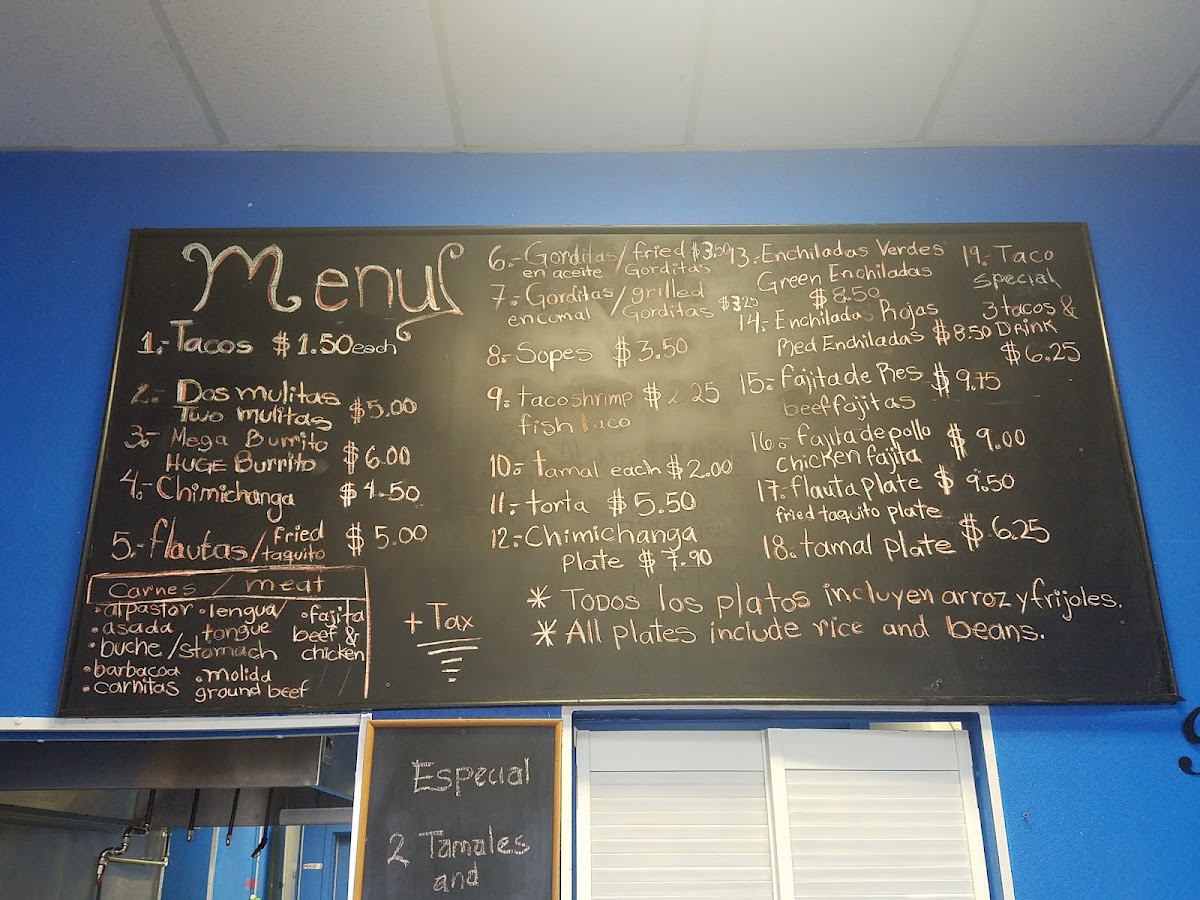 Menu
1.- Tacos $1.50 each
2.- Dos mulitas
Two mulitas $5.00
3.- Mega Burrito
HUGE Burrito $6.00
4.- Chimichanga $4.50
5.- flautas/fried taquito $5.00
carnes / meat
• al pastor • lengua/ tongue • fajita beef & chicken
• asada
• buche/stomach
• barbacoa • molida ground beef
• carnitas
+ Tax
6.- Gorditas / fried $3.50
en aceite / Gorditas
7.- Gorditas / grilled
en comal / Gorditas $3.25
8.- Sopes $3.50
9.- taco shrimp $2.25
fish taco
10.- tamal each $2.00
11.- torta $5.50
12.- Chimichanga
Plate $7.90
13.- Enchiladas Verdes
Green Enchiladas
$8.50
14.- Enchiladas Rojas
Red Enchiladas $8.50
15.- fajita de Res $9.75
beef fajitas
16.- fajita de pollo $9.00
chicken fajita
17.- flauta plate $9.50
fried taquito plate
18.- tamal plate $6.25
19.- Taco
special
3 tacos &
DRINK
$6.25
* TODOS los platos incluyen arroz y frijoles.
* All plates include rice and beans.
Especial
2 Tamales
and